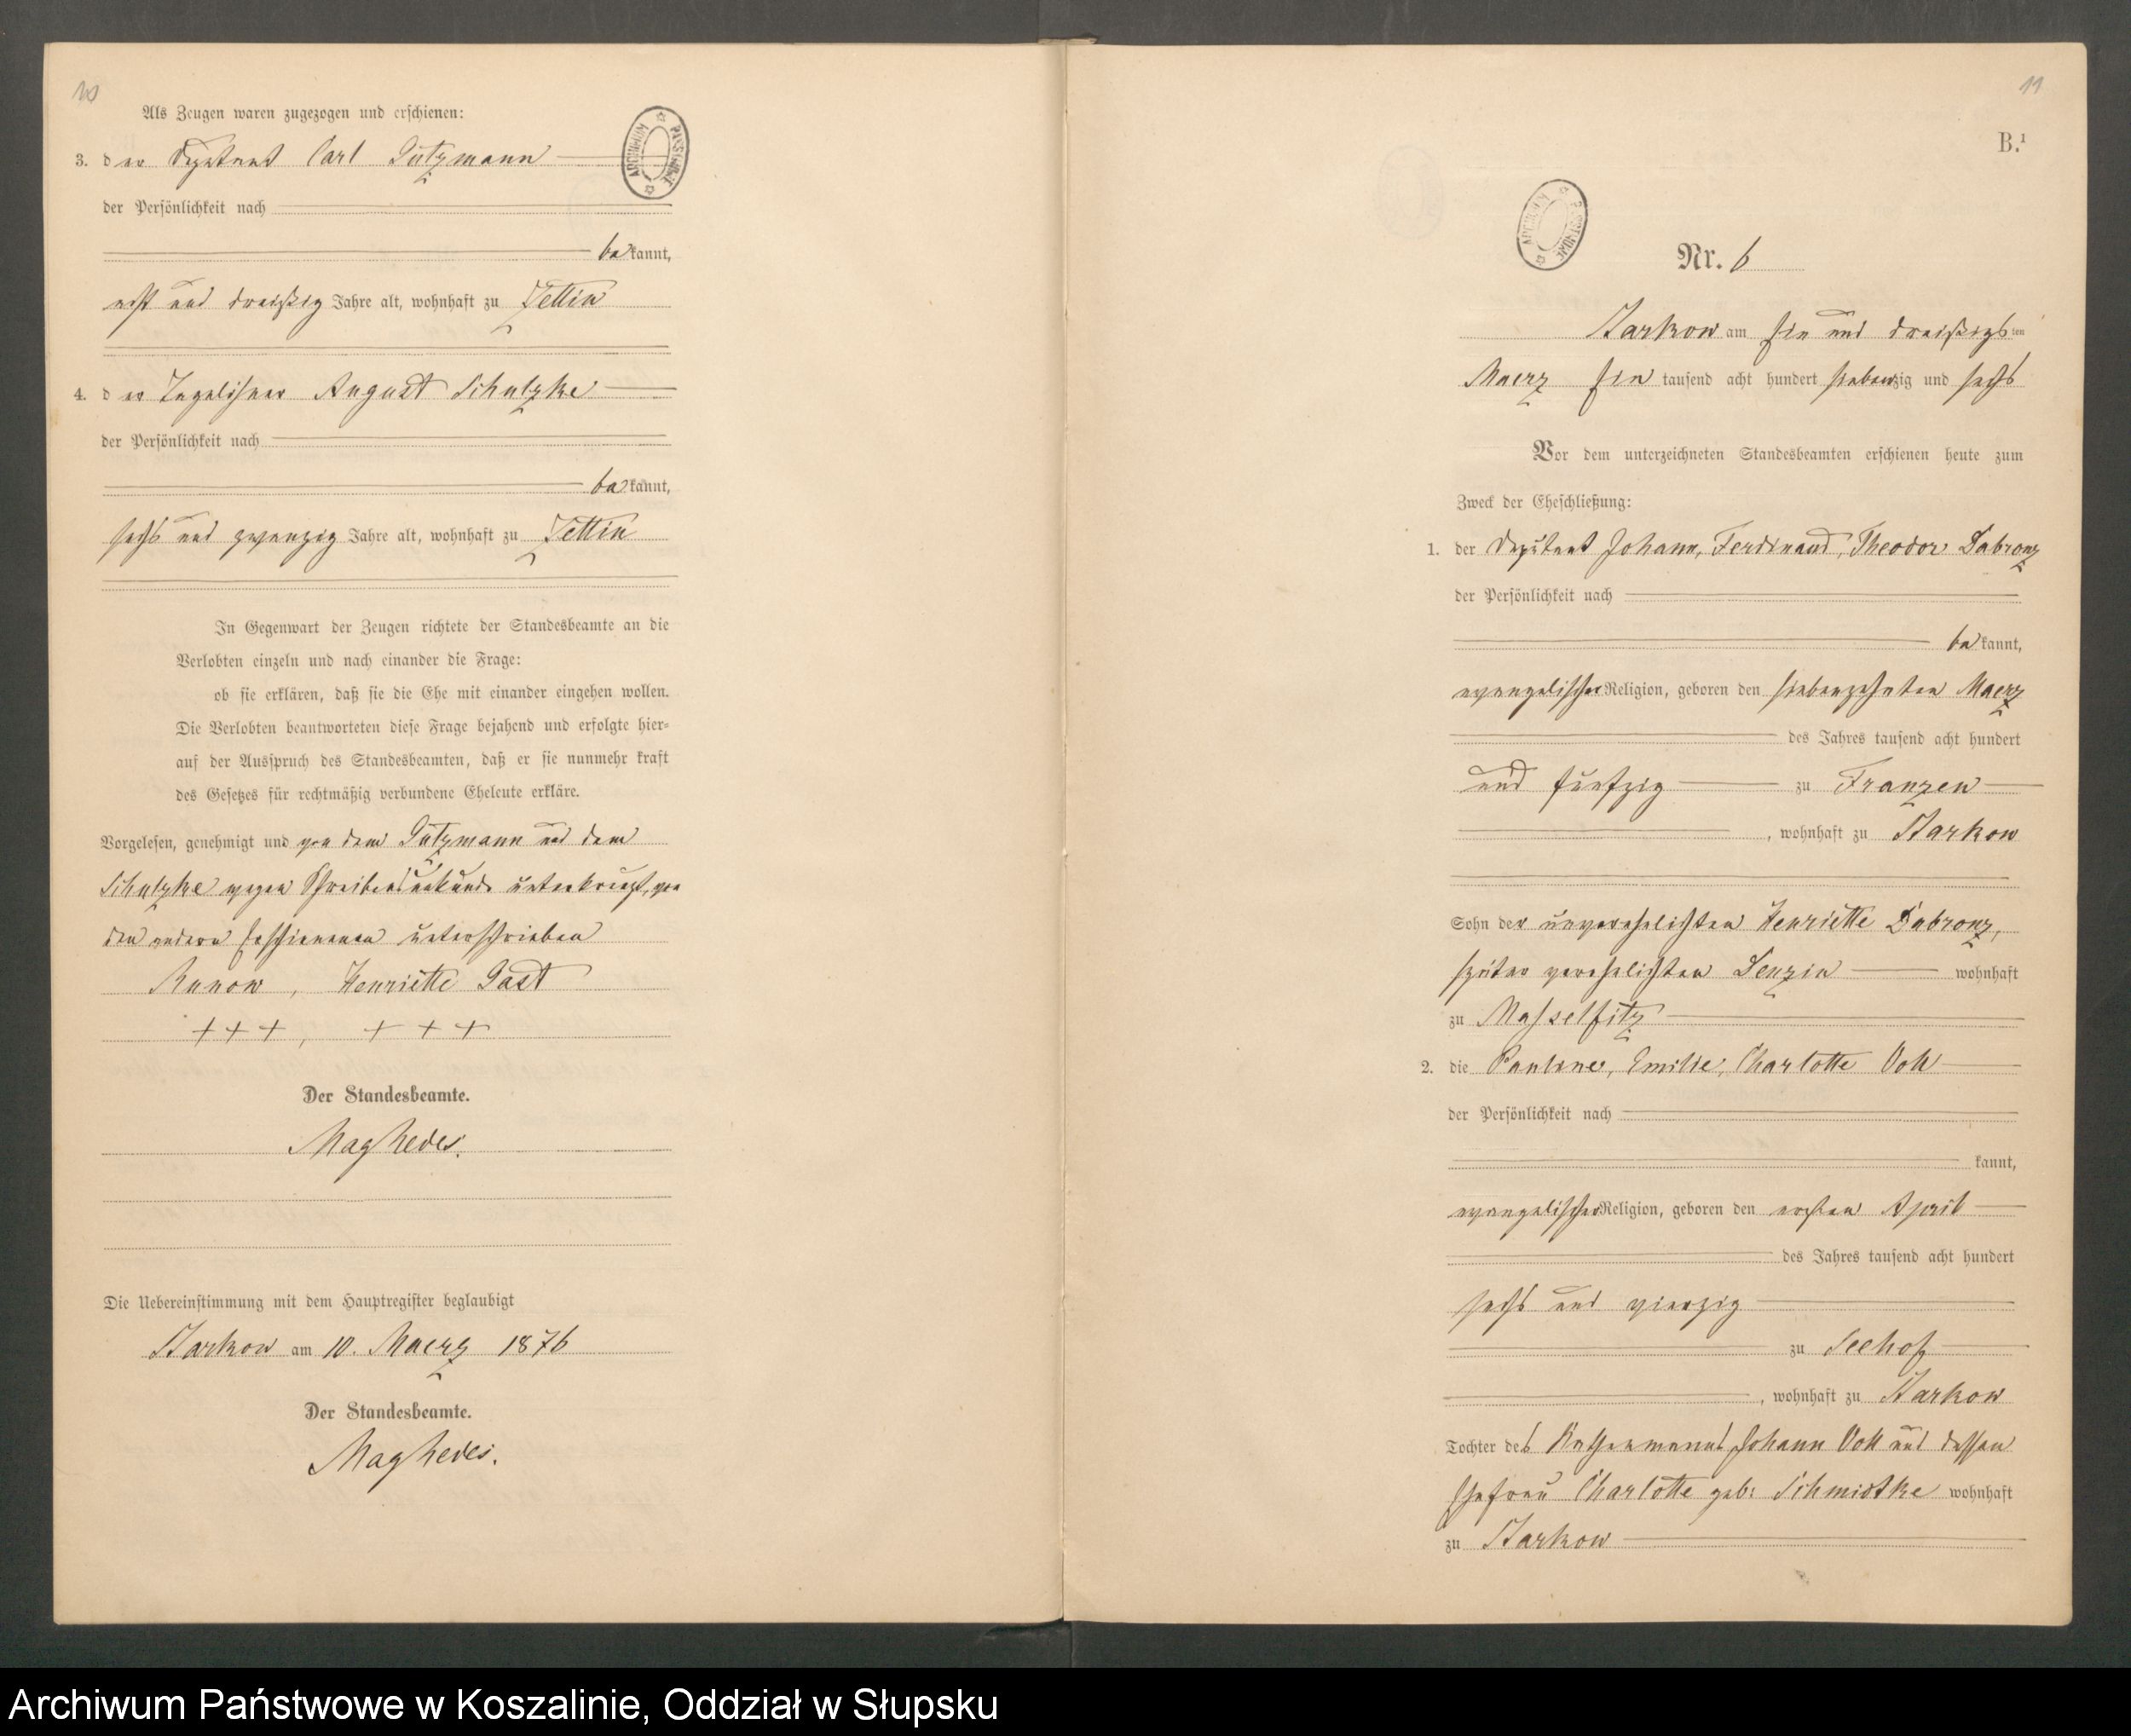 10
Als Zeugen waren zugezogen und erschienen:
3. der Deputant Carl Pützmann
der Persönlichkeit nach
bekannt,
acht und dreißig Jahre alt, wohnhaft zu Zettin
4. der Tagelöhner August Schulzke
der Persönlichkeit nach
bekannt,
sechs und zwanzig Jahre alt, wohnhaft zu Zettin
In Gegenwart der Zeugen richtete der Standesbeamte an die
Verlobten einzeln und nach einander die Frage:
ob sie erklären, daß sie die Ehe mit einander eingehen wollen.
Die Verlobten beantworteten diese Frage bejahend und erfolgte hier-
auf der Ausspruch des Standesbeamten, daß er sie nunmehr kraft
des Gesetzes für rechtmäßig verbundene Eheleute erkläre.
Vorgelesen, genehmigt und von dem Pützmann und dem
Schulzke wegen Schreibensunkunde unterkreuzt, von
den andern Erschienenen unterschrieben
Runow, Henriette Past
+++, +++
Der Standesbeamte.
Die Uebereinstimmung mit dem Hauptregister beglaubigt
Starkow am 10. Maerz 1876
Der Standesbeamte.
11
B.¹
ARCHIWUM PAŃSTWOWE
Nr. 6
Starkow am ein und dreißigsten
Maerz Ein tausend acht hundert siebenzig und sechs
Vor dem unterzeichneten Standesbeamten erschienen heute zum
Zweck der Eheschließung:
1. der Deputant Johann, Ferdinand, Theodor Labronz
der Persönlichkeit nach
bekannt,
evangelischer Religion, geboren den siebenzehnten Maerz
des Jahres tausend acht hundert
und fünfzig zu Franzen
, wohnhaft zu Starkow
Sohn der unverehelichten Henriette Labronz,
später verehelichten Lenzin wohnhaft
zu Masselfitz
2. die Pauline, Emilie, Charlotte Voll
der Persönlichkeit nach
kannt,
evangelischer Religion, geboren den ersten April
des Jahres tausend acht hundert
sechs und vierzig
zu Seehof
, wohnhaft zu Starkow
Tochter des Kathenmanns Johann Voll und dessen
Ehefrau Charlotte geb: Schmidtke wohnhaft
zu Starkow
Archiwum Państwowe w Koszalinie, Oddział w Słupsku